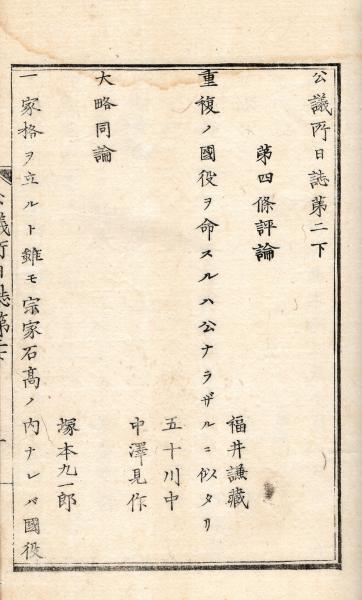 公議所日誌第二下
第四條評論
福井謙藏
重複ノ國役ヲ命スルハ公ナラザルニ似タリ
五十川中
中澤見作
大略同論
塚本九一郎
一家格ヲ立ルト雖モ宗家石高ノ内ナレバ國役
公議所日誌第二下